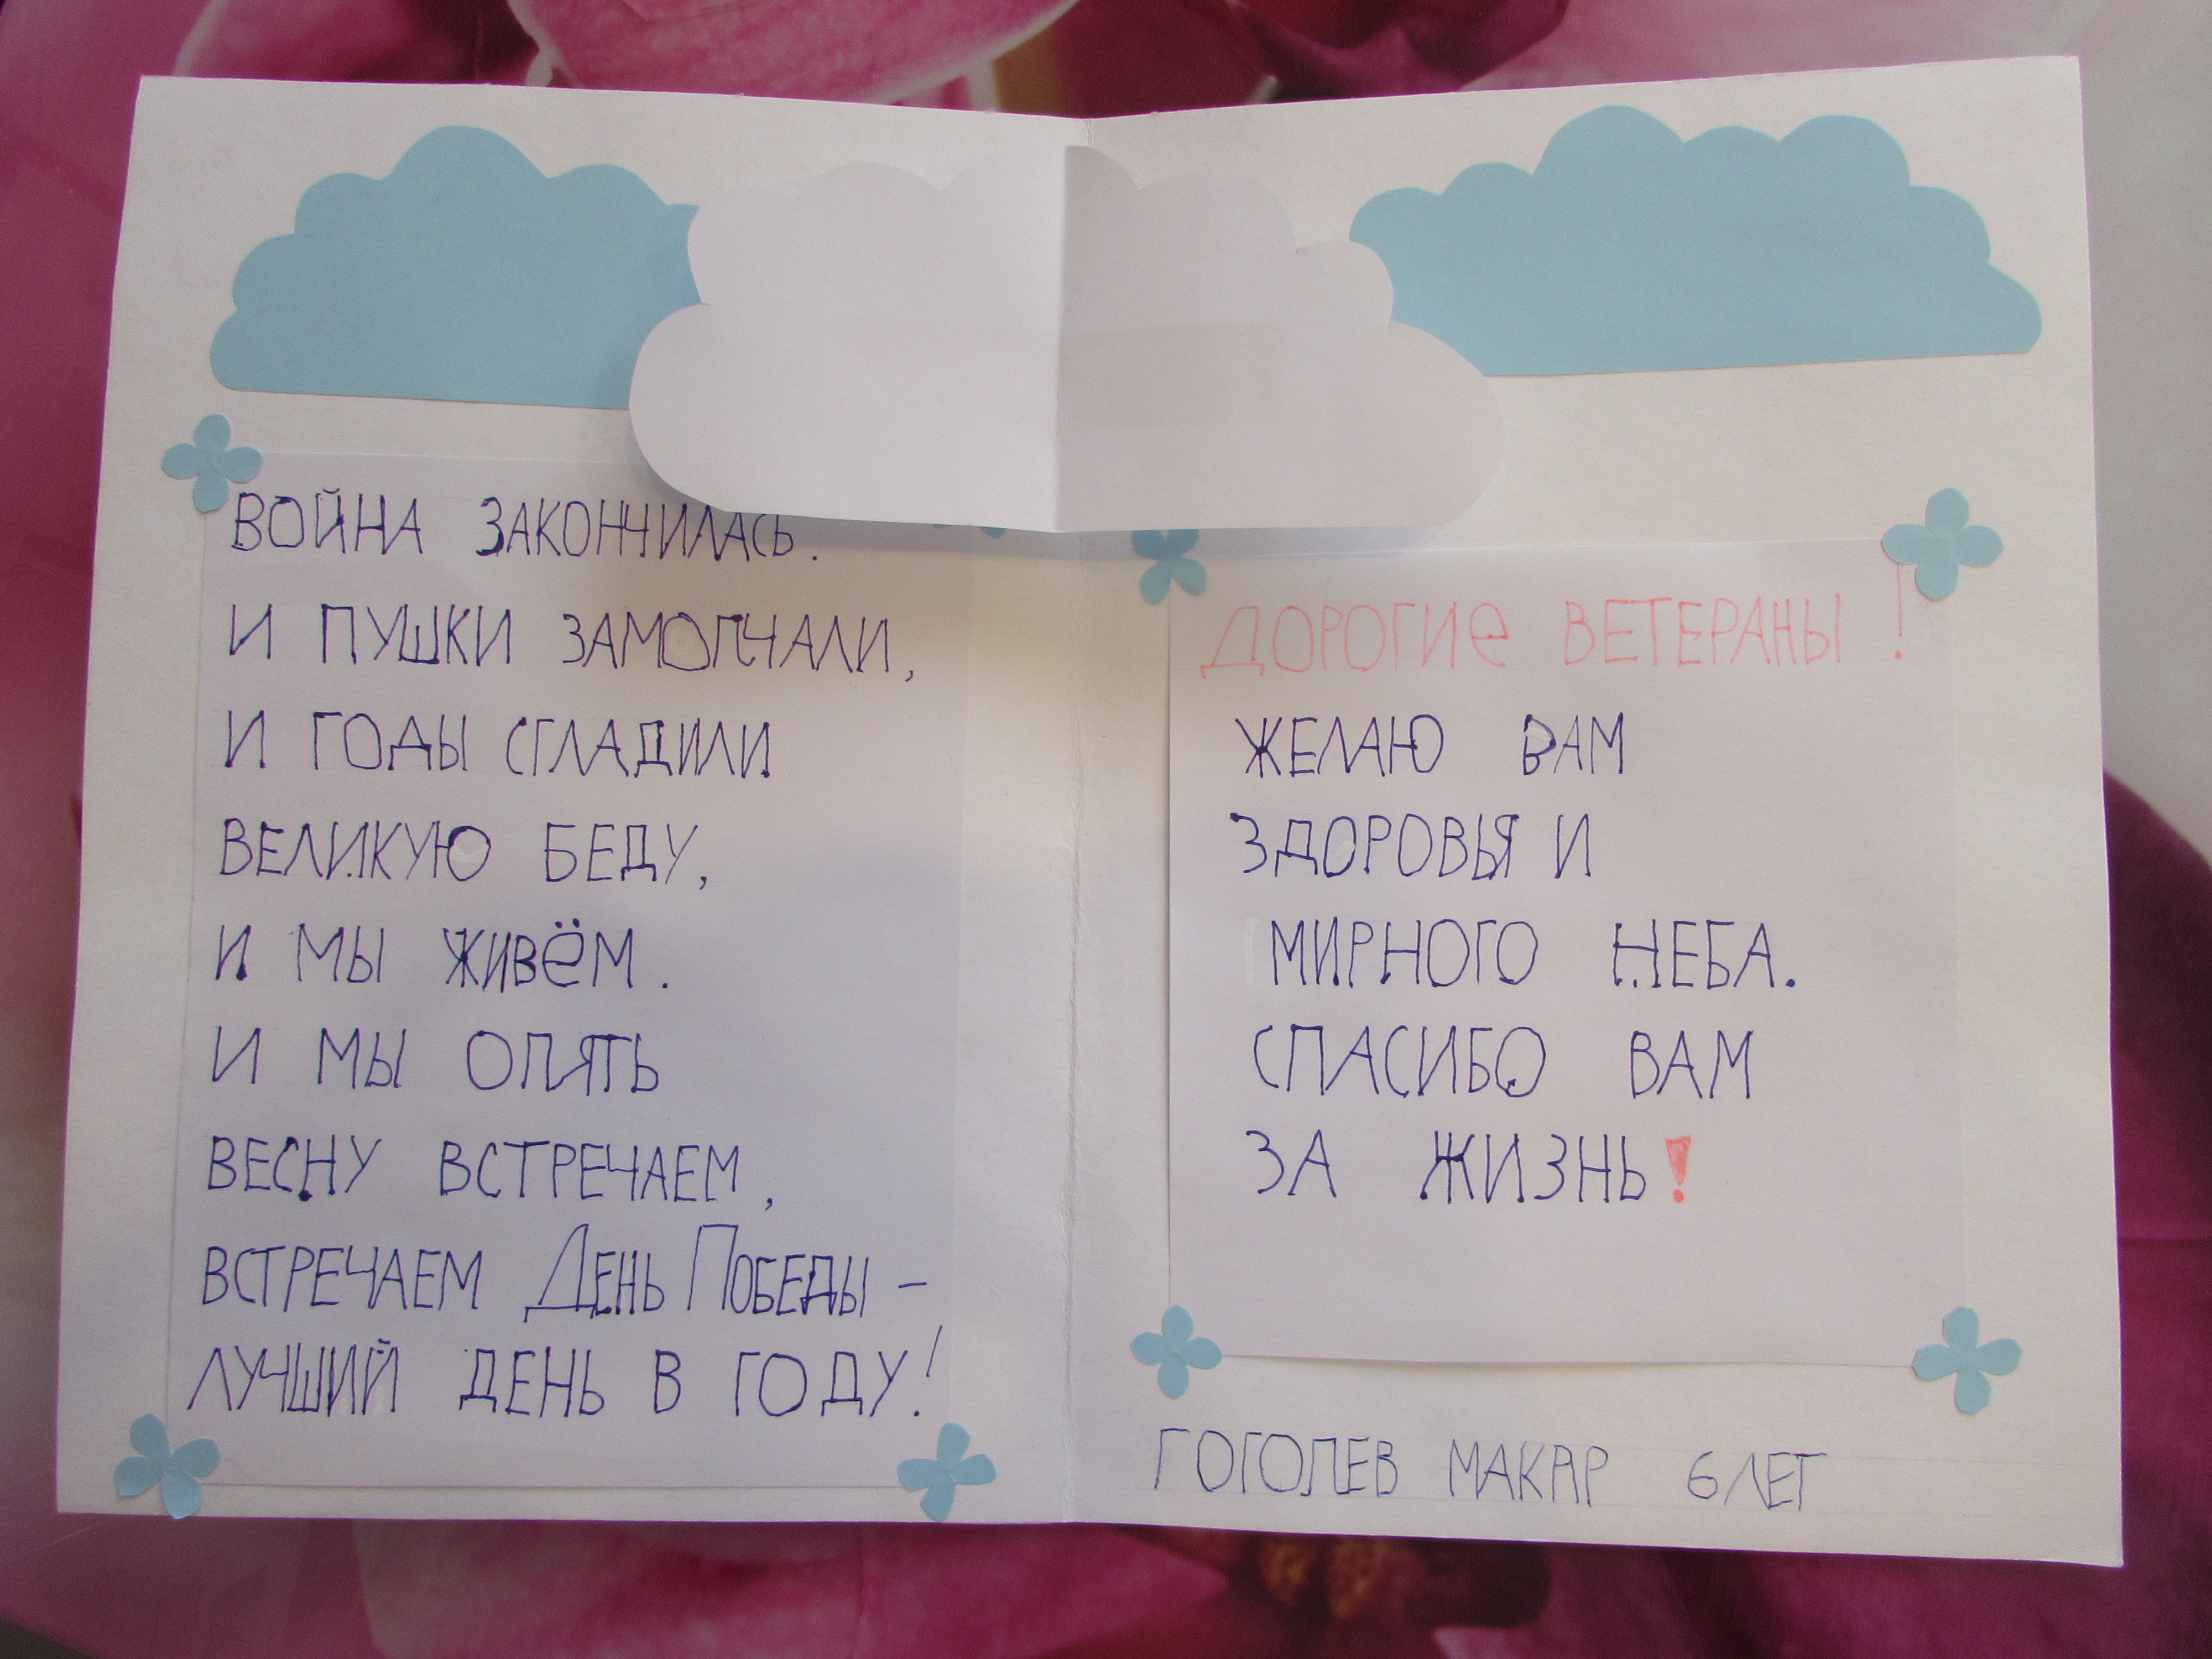 ВОЙНА ЗАКОНЧИЛАСЬ.
И ПУШКИ ЗАМОЛЧАЛИ,
И ГОДЫ СГЛАДИЛИ
ВЕЛИКУЮ БЕДУ,
И МЫ ЖИВЁМ.
И МЫ ОПЯТЬ
ВЕСНУ ВСТРЕЧАЕМ,
ВСТРЕЧАЕМ ДЕНЬ ПОБЕДЫ –
ЛУЧШИЙ ДЕНЬ В ГОДУ!
ДОРОГИЕ ВЕТЕРАНЫ!
ЖЕЛАЮ ВАМ
ЗДОРОВЬЯ И
МИРНОГО НЕБА.
СПАСИБО ВАМ
ЗА ЖИЗНЬ!
ГОГОЛЕВ МАКАР 6 ЛЕТ